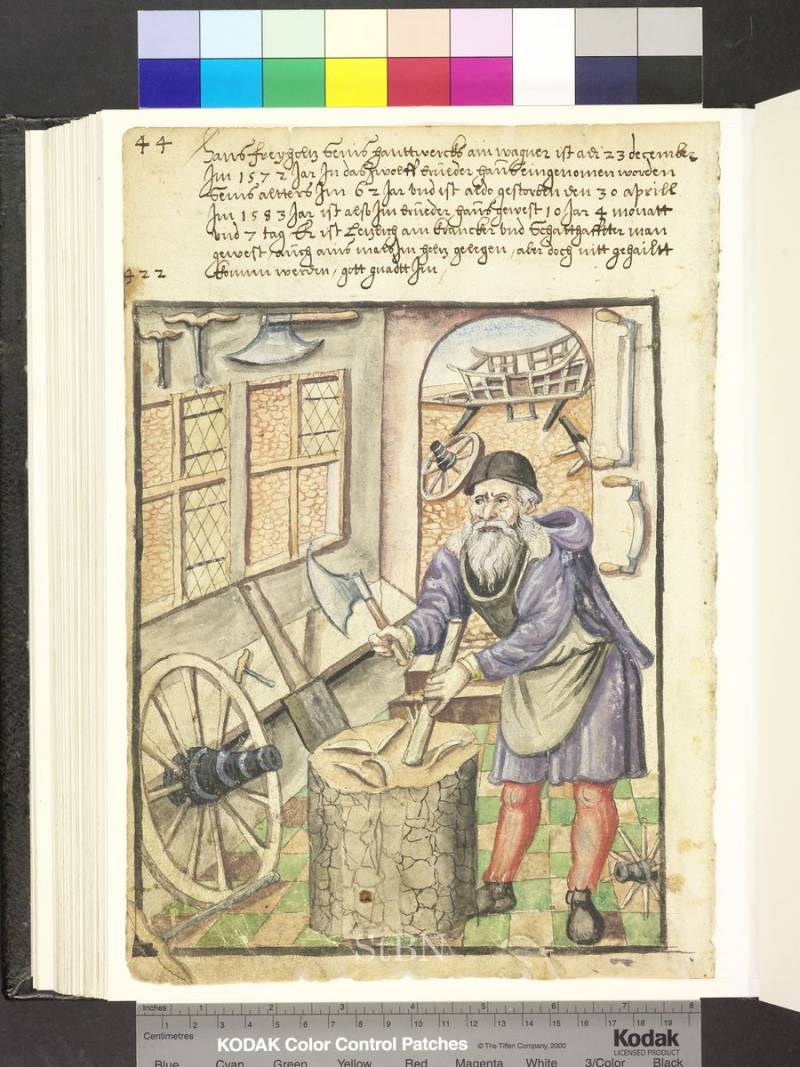 44
Hans freyholtz seins hanttwercks ain wagner ist adi 23 december
Im 1572 Jar In das zwolff brüeder haus eingenomen worden
seins altters Im 62 Jar vnd ist aldo gestorben den 30 aprill
Im 1583 Jar ist also Im brüeder haus gewest 10 Jar 4 monatt
vnd 7 tag Er ist ein krancker vnd schatthaffter man
gewest auch ains mals Im holtz gelegen, aber doch nitt gehailtt
422
konnen werden, gott gnadtt Im
StBN
Inches 1 2 3 4 5 6 7 8
1 2 3 4 5 6 7 8 9 10 11 12 13 14 15 16 17 18 19
Centimetres
KODAK Color Control Patches © The Tiffen Company, 2000 Kodak
LICENSED PRODUCT
Blue Cyan Green Yellow Red Magenta White 3/Color Black